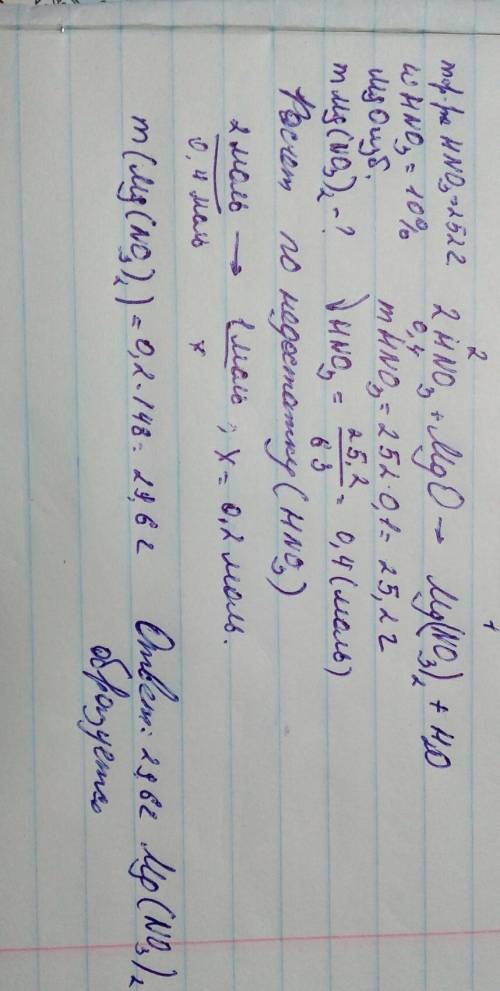 m р-ра HNO3 = 252 г
w HNO3 = 10%
MgO изб.
m Mg(NO3)2 - ?
2 HNO3 + MgO → Mg(NO3)2 + H2O
0,4
m HNO3 = 252 · 0,1 = 25,2 г
√ HNO3 = 25,2 / 63 = 0,4 (моль)
Расчет по недостатку (HNO3)
2 моль → 1 моль; x = 0,2 моль.
0,4 моль x
m(Mg(NO3)2) = 0,2 · 148 = 29,6 г Ответ: 29,6 г Mg(NO3)2
образуется